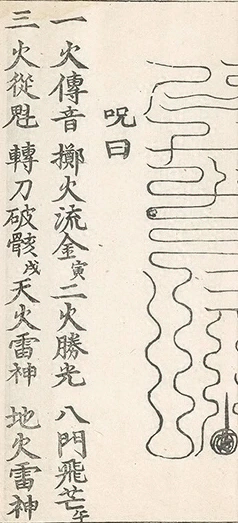 呪曰
一火傳音 擲火流金寅 二火勝光 八門飛芒午
三火從魁 轉刀破骸戌 天火雷神 地火雷神